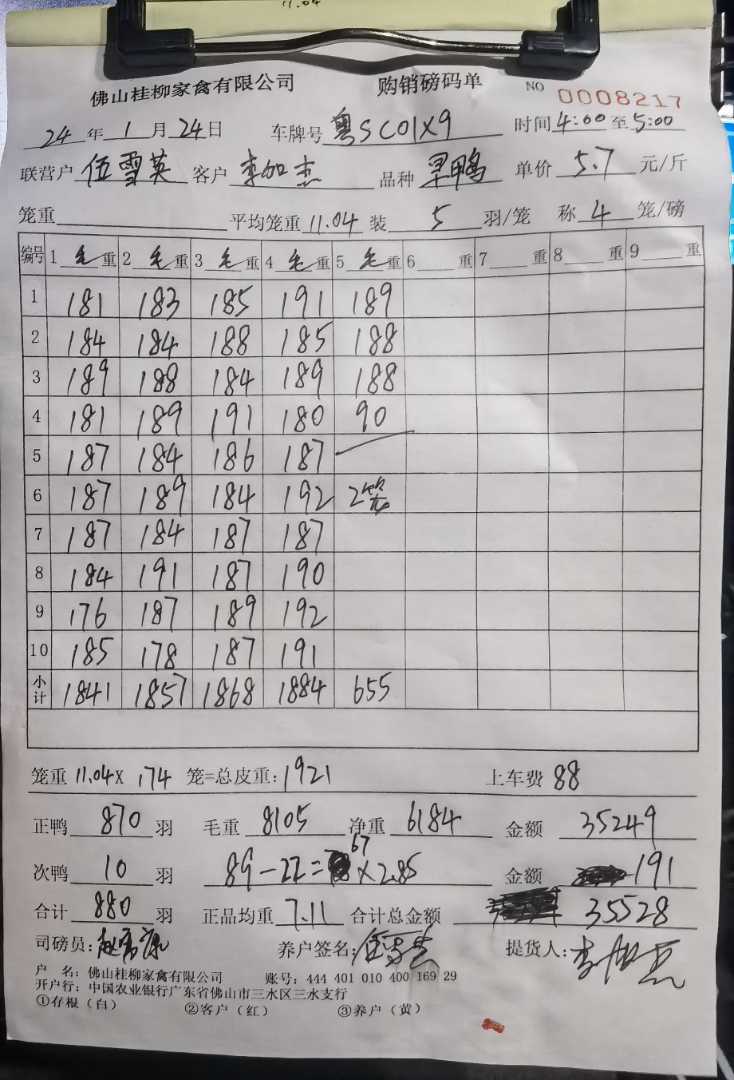 11.04
佛山桂柳家禽有限公司 购销磅码单 NO 0008217
24年1月24日 车牌号 粤SC01X9 时间4:00至5:00
联营户 伍雪英 客户 李如杰 品种 旱鸭 单价 5.7 元/斤
笼重 平均笼重 11.04 装 5 羽/笼 称 4 笼/磅
编号 1 毛重 2 毛重 3 毛重 4 毛重 5 毛重 6 重 7 重 8 重 9 重
1 181 183 185 191 189
2 184 184 188 185 188
3 189 188 184 189 188
4 181 189 191 180 90
5 187 184 186 187
6 187 189 184 192 2笼
7 187 184 187 187
8 184 191 187 190
9 176 187 189 192
10 185 178 187 191
小计 1841 1857 1868 1884 655
笼重 11.04X 174 笼=总皮重: 1921 上车费 88
正鸭 870 羽 毛重 8105 净重 6184 金额 35249
次鸭 10 羽 89-22=67×2.85 金额 191
合计 880 羽 正品均重 7.11 合计总金额 35528
司磅员: 养户签名: 伍雪英 提货人: 李如杰
户 名: 佛山桂柳家禽有限公司 账号: 444 401 010 400 169 29
开户行: 中国农业银行广东省佛山市三水区三水支行
①存根(白) ②客户(红) ③养户(黄)